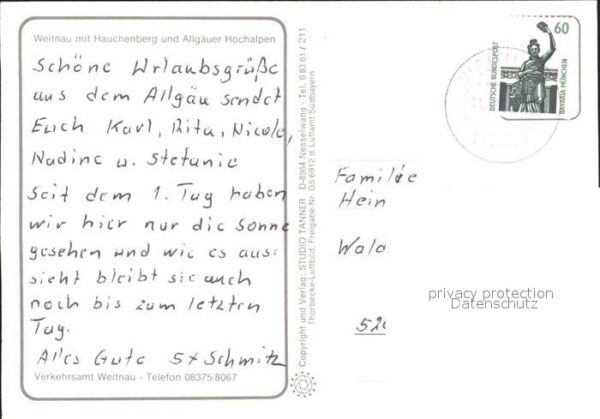 Weitnau mit Hauchenberg und Allgäuer Hochalpen
Schöne Urlaubsgrüße
aus dem Allgäu sendet
Euch Karl, Rita, Nicole,
Nadine u. Stefanie
Seit dem 1. Tag haben
wir hier nur die Sonne
gesehen und wie es aus:
sieht bleibt sie auch
noch bis zum letzten
Tag.
Alles Gute 5x Schmitz
Verkehrsamt Weitnau - Telefon 08375/8067
Copyright und Verlag: STUDIO TANNER D-8964 Nesselwang - Tel. 0 83 61 / 211
Thorbecke-Luftbild, Freigabe-Nr. G5/6912 d. Luftamt Südbayern
60
DEUTSCHE BUNDESPOST
BAVARIA MÜNCHEN
Familie
Hein
Wald
privacy protection
Datenschutz
52